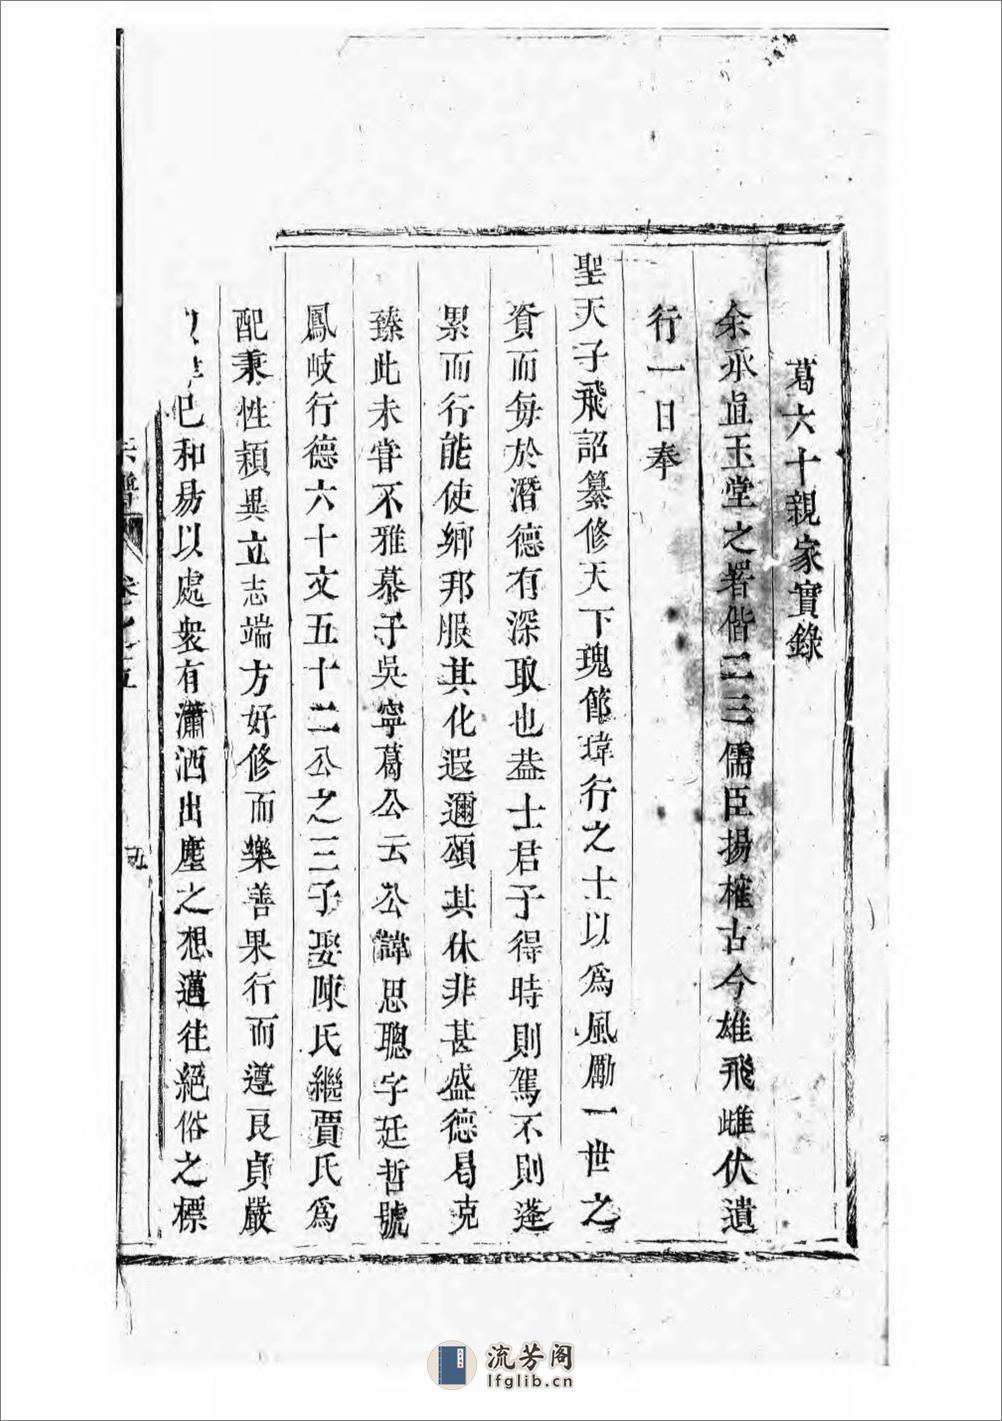 葛六十親家實錄
余承直玉堂之署偕二三儒臣揚搉古今雄飛雌伏遺
行一日奉
聖天子飛詔纂修天下瑰節瑋行之士以爲風勵一世之
資而毎於潛德有深取也葢士君子得時則駕不則蓬
累而行能使鄉邦服其化遐邇頌其休非甚盛德曷克
臻此未甞不雅慕于吳寧葛公云公諱思聰字廷哲號
鳳岐行德六十文五十二公之三子娶陳氏繼賈氏爲
配秉性穎異立志端方好修而樂善果行而遵良貞嚴
已和易以處衆有瀟洒出塵之想邁往絕俗之標
宗譜
卷之五
流芳阁
lfglib.cn